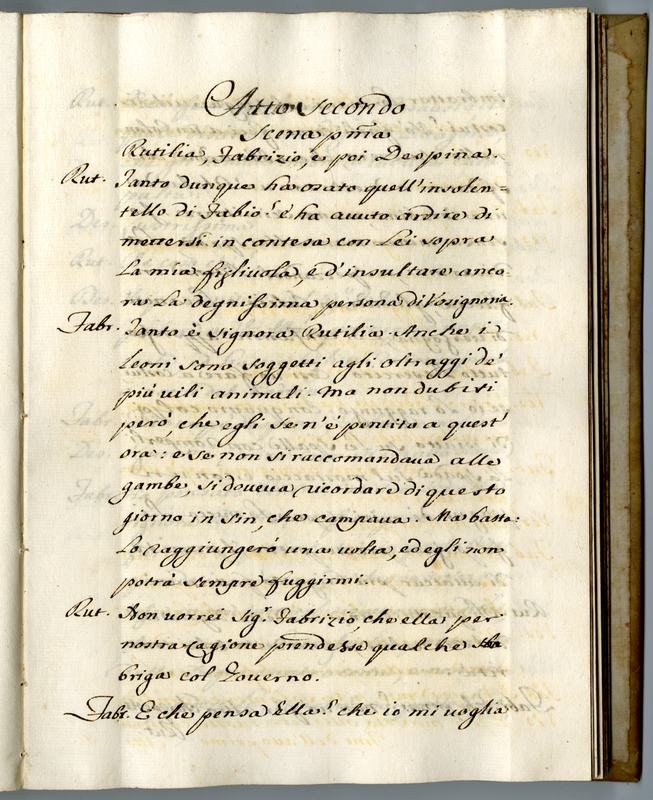 Atto Secondo
Scena pma
Rutilia, Fabrizio, e poi Despina.
Rut. Tanto dunque ha osato quell'insolen=
tello di Fabio? e ha avuto ardire di
mettersi in contesa con Lei sopra
La mia figlivola, e d'insultare anco-
ra La degnissima persona di Vosignoria.
Fabr. Tanto è Signora Rutilia. Anche i
Leoni sono soggetti agli oltraggi de'
più vili animali. Ma non dubiti
però, che egli se n'è pentito a quest'
ora: e se non si raccomandava alle
gambe, si doveva ricordare di questo
giorno in sin, che campava. Ma basta:
Lo raggiungerò una volta, ed egli non
potrà sempre fuggirmi.
Rut. Non vorrei Sigr. Fabrizio, che ella per
nostra cagione prendesse qualche
briga col Governo.
Fabr. E che pensa Ella? che io mi voglia